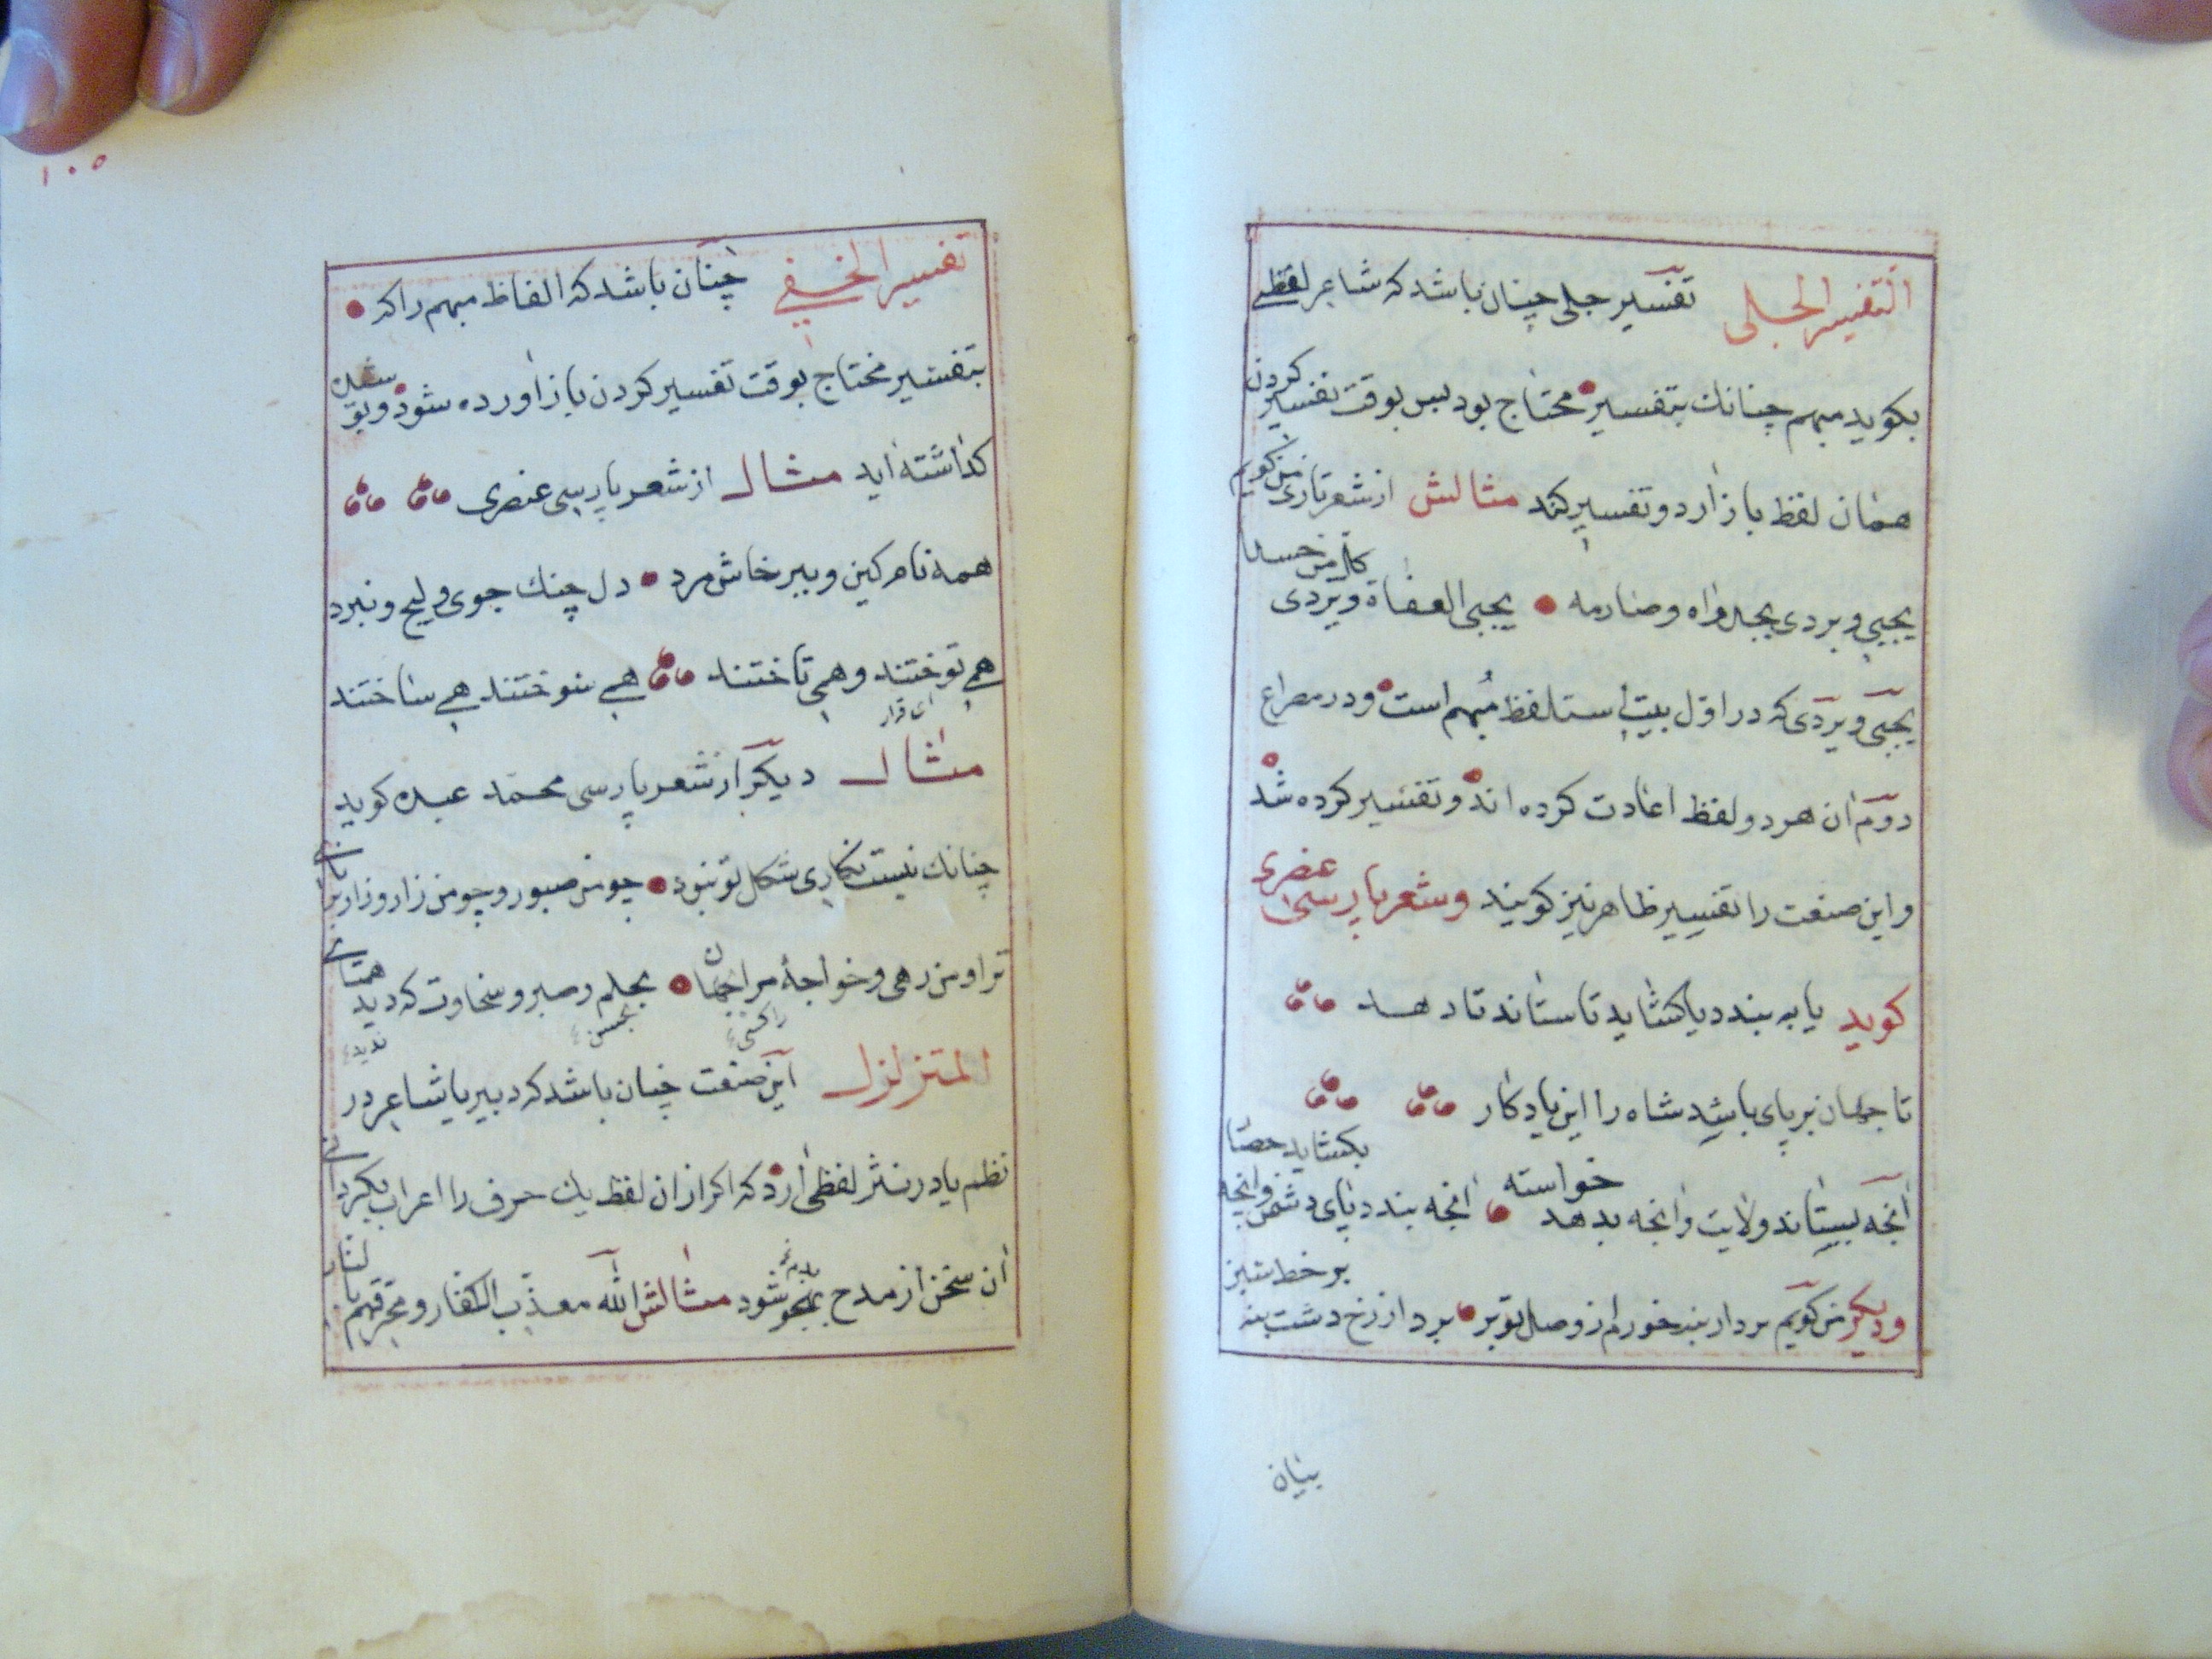 التفسير الجلی تفسیر جلی چنان باشد که شاعر لفظی
بکوید مبهم چنانك بتفسیر محتاج بود پس بوقت تفسیر کردن
همان لفظ باز ارد و تفسیر کند مثالش از شعر تازی من کویم
یحیی ویردی بجدواه وصارمه یحیی العفاة ویردی کل من حسدا
یحیی ویردی که در اوّل بیت است لفظ مُبهم است ودر مصراع
دوّم ان هر دو لفظ اعادت کرده اند وتفسیر کرده شد
واین صنعت را تفسیر ظاهر نیز کویند وشعر پارسی عنصری
کوید یا به بندد یا کشاید تا ستاند تا دهد
تا جهان بر پای باشد شاه را این یادکار
انچه بستاند ولایت وانچه بدهد خواسته انچه بندد پای دشمن وانچه بکشاید حصار
ودیکر من کویم بر دار بند خورم از وصل تو بر برد از رخ دشت
بنیان
۱۰۵
تفسیر الخفی چنان باشد که الفاظ مبهم را که
بتفسیر محتاج بوقت تفسیر کردن باز اورده شود
کذاشته اید مثال از شعر پارسی عنصری
همه نام کین وببر خاش مرد دل جنك جوی وبسیج ونبرد
همی توختند وهمی تاختند همی سوختند همی ساختند
ای قرار
مثال دیکر از شعر پارسی محمّد عبده کوید
چنانك نیست نکاری شکل تو نبود چو من صبور و چو من زار وزار بر
ترا ومن رهی وخواجۀ مرا جهان بحلم وصبر وسخاوت که دید همتائی
المتزلزل این صنعت چنان باشد که دبیر یا شاعر در
نظم یا در نثر لفظی ارد که اکر از ان لفظ یك حرف را اعراب بکردانی
ان سخن از مدح بهجو شود مثالش الله معذّب الکفار ومحرقهم بالنار